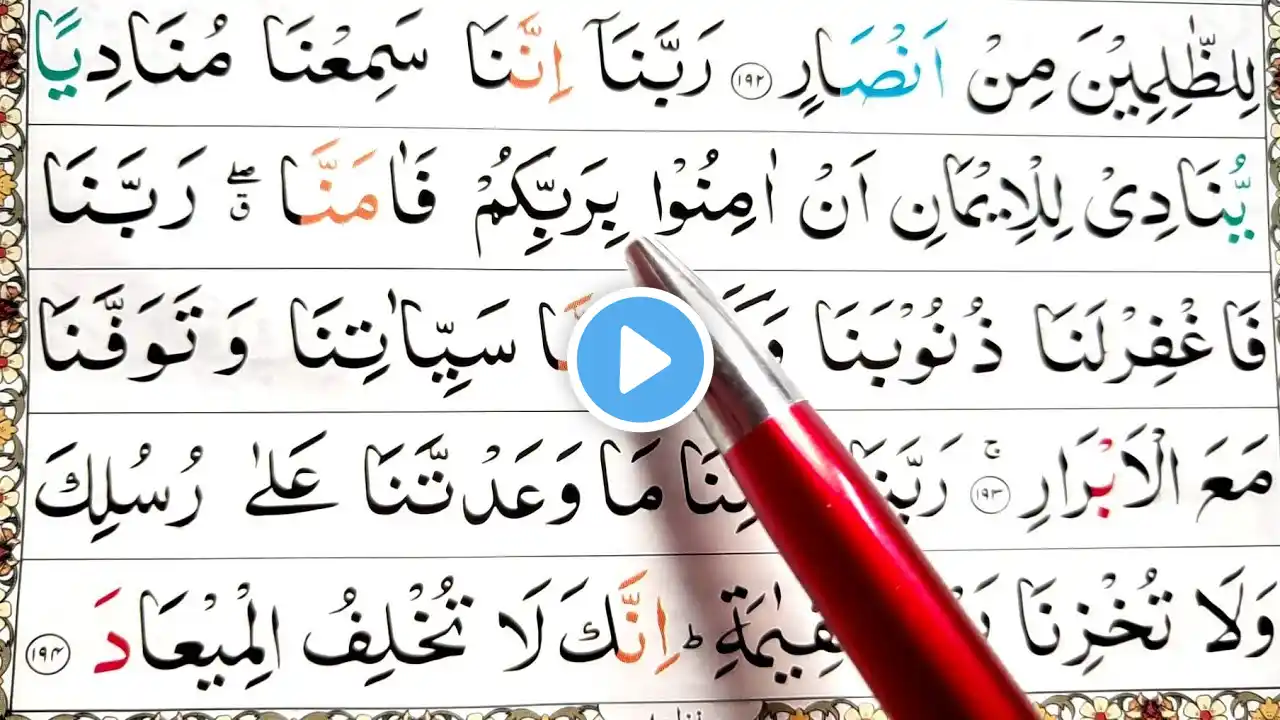 لِلظّٰلِمِيْنَ مِنْ اَنْصَارٍ ۝۱۹۲ رَبَّنَاۤ اِنَّنَا سَمِعْنَا مُنَادِيًا
يُّنَادِىْ لِلْاِيْمَانِ اَنْ اٰمِنُوْا بِرَبِّكُمْ فَاٰمَنَّا ۖۗ رَبَّنَا
فَاغْفِرْلَنَا ذُنُوْبَنَا سَيِّاٰتِنَا وَتَوَفَّنَا
مَعَ الْاَبْرَارِ ۚ ۝۱۹۳ مَا وَعَدْتَّنَا عَلٰى رُسُلِكَ
وَلَا تُخْزِنَا اِنَّكَ لَا تُخْلِفُ الْمِيْعَادَ ۝۱۹۴